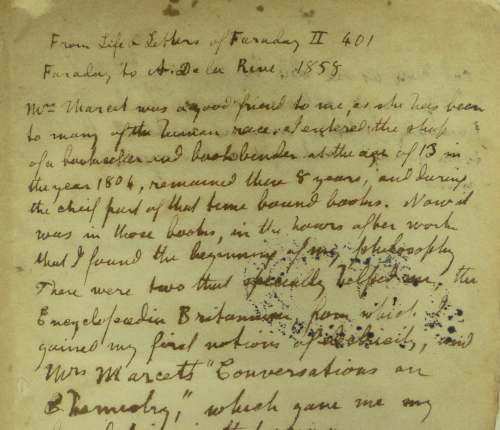 From Life & Letters of Faraday II 401
Faraday to A. De la Rive, 1858
Mrs Marcet was a good friend to me, as she has been
to many of the human race. I entered the shop
of a bookseller and bookbinder at the age of 13 in
the year 1804, remained there 8 years, and during
the cheif part of that time bound books. Now it
was in those books, in the hours after work
that I found the beginning of my philosophy
There were two that specially helped me, the
Encyclopædia Britannica, from which I
gained my first notions of electricity, and
Mrs Marcet's "Conversations on
Chemistry," which gave me my